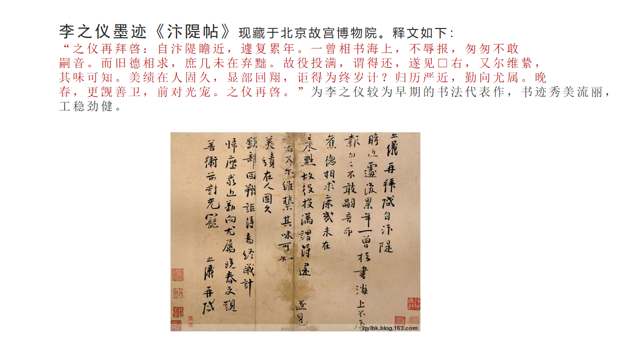 李之仪墨迹《汴隄帖》现藏于北京故宫博物院。释文如下：
“之仪再拜啓：自汴隄瞻近，遽复累年。一曾相书海上，不辱报，匆匆不敢
嗣音。而旧德相求，庶几未在弃黜。故役投满，谓得还，遂见□右，又尔维絷，
其味可知。美绩在人固久，显部回翔，讵得为终岁计？归历严近，勤向尤属。晚
春，更觊善卫，前对光宠。之仪再啓。”为李之仪较为早期的书法代表作，书迹秀美流丽，
工稳劲健。
之儀再拜啓自汴隄
瞻近遽復累年一曾相書海上不辱
報匆匆不敢嗣音而
舊德相求庶或未在
棄黜故役投滿謂得還 遂見
右又尔維縶其味可知
美績在人固久
顯部回翔詎得為終歲計
歸歷嚴近勤向尤屬晚春更覬
善衛前對光寵 之儀再啓
zgylbk.blog.163.com